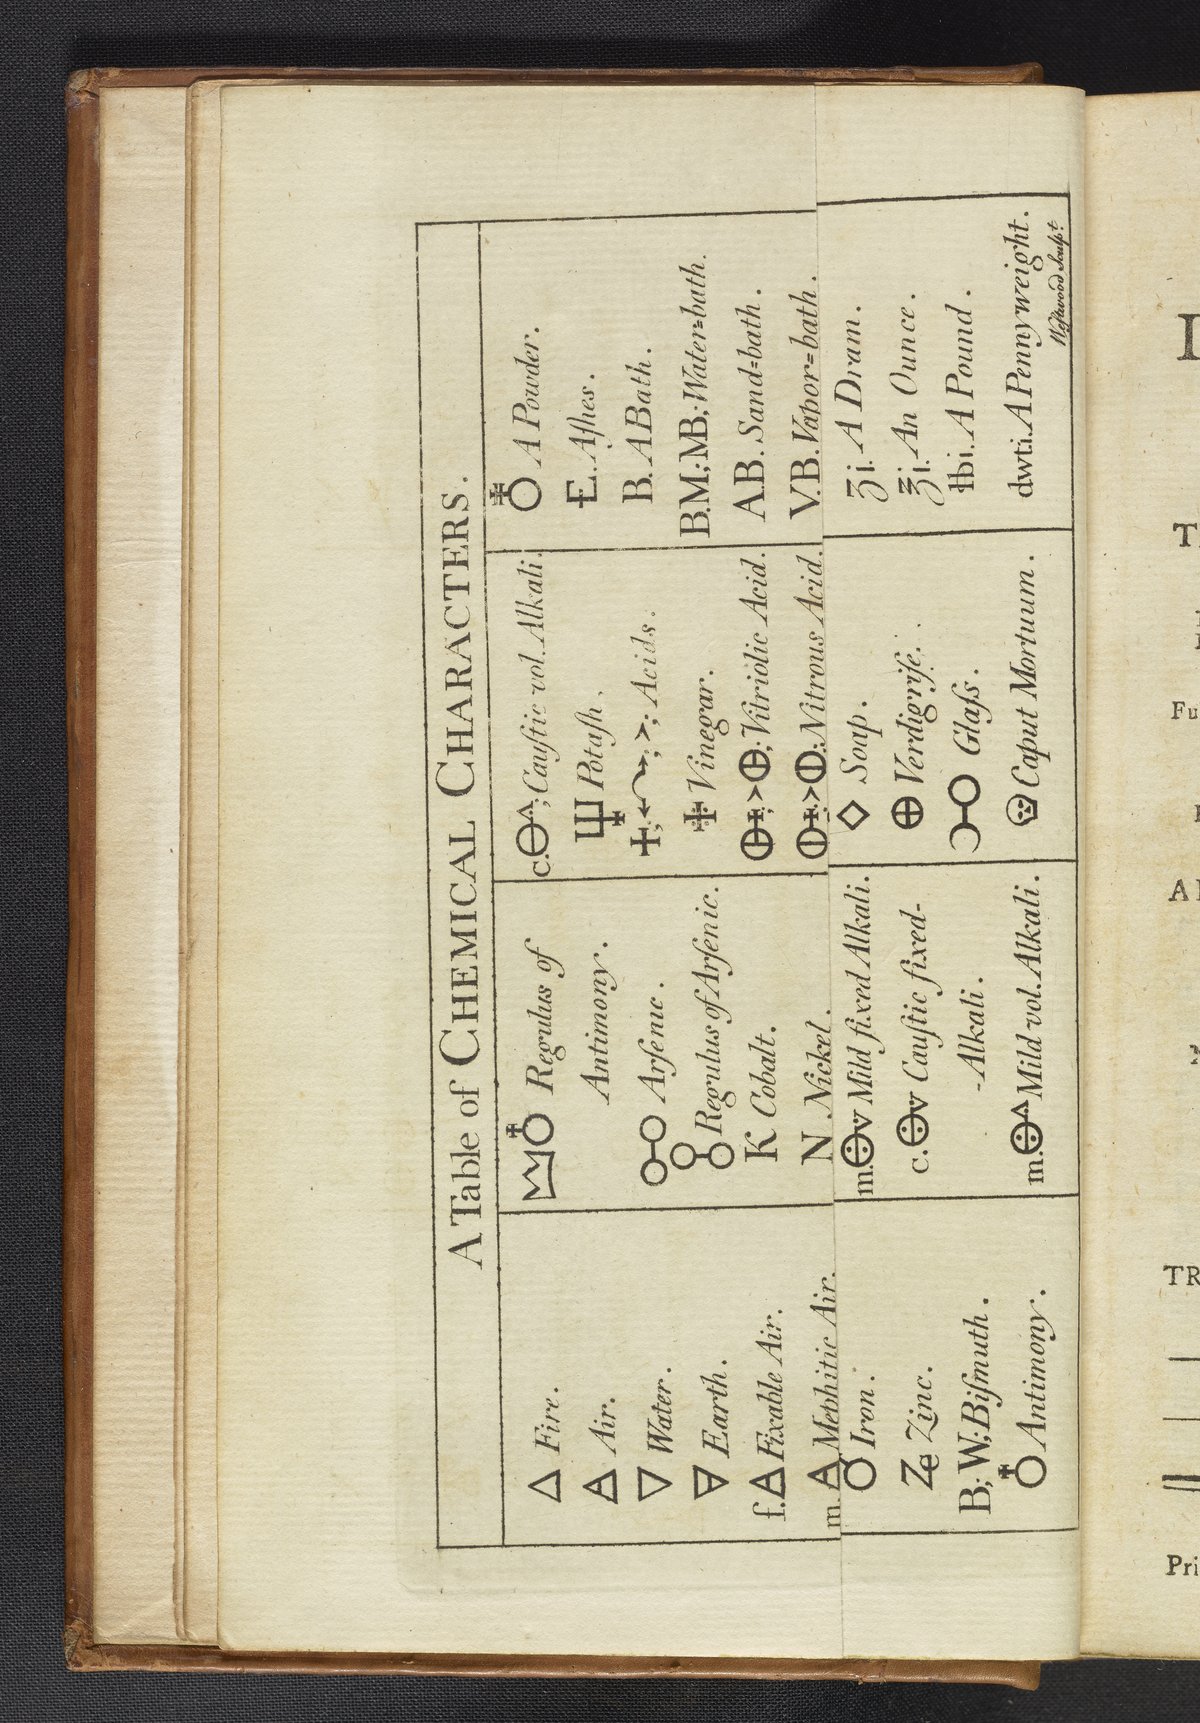 A Table of CHEMICAL CHARACTERS.
🜂 Fire.
🜁 Air.
🜄 Water.
🜃 Earth.
f.🜁 Fixable Air.
m.🜁 Mephitic Air.
Iron.
Zinc.
B; W; Biſmuth.
♁ Antimony.
Regulus of
Antimony.
Arſenic.
Regulus of Arſenic.
K Cobalt.
N Nickel.
m. Mild fixed Alkali.
c. Cauſtic fixed-
-Alkali.
m. Mild vol. Alkali.
c. Cauſtic vol. Alkali.
Potaſh.
Acids.
Vinegar.
Vitriolic Acid.
Nitrous Acid.
Soap.
Verdigriſe.
Glaſs.
Caput Mortuum.
A Powder.
E. Aſhes.
B. A Bath.
B.M; MB; Water=bath.
A.B. Sand=bath.
V.B. Vapor=bath.
ʒi. A Dram.
℥i. An Ounce.
℔i. A Pound.
dwti. A Pennyweight.
Weſtwood Sculpt.
I
T
Fu
A
TR
Pri